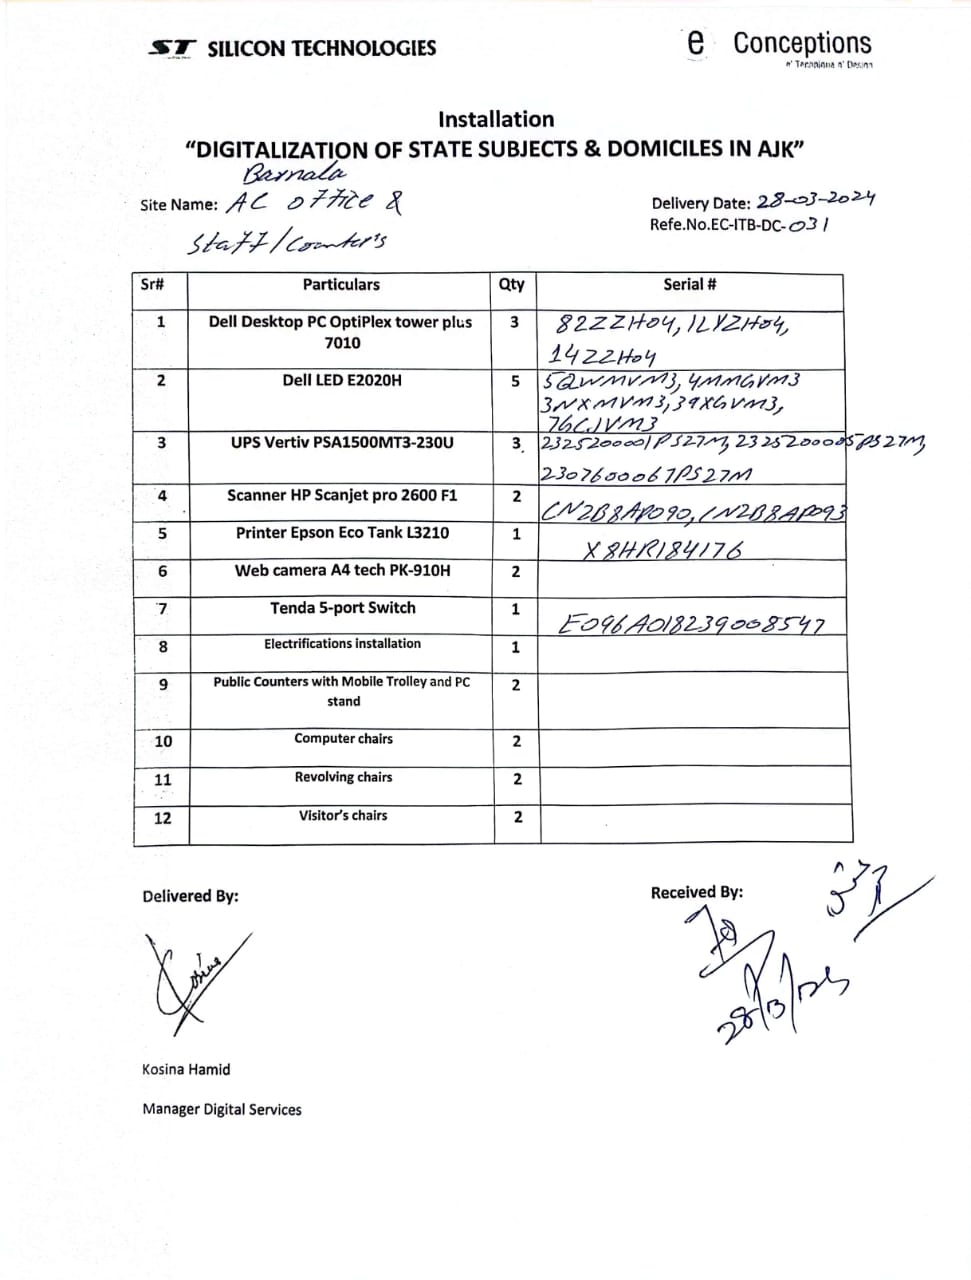 ST SILICON TECHNOLOGIES
e Conceptions
Installation
“DIGITALIZATION OF STATE SUBJECTS & DOMICILES IN AJK”
Barnala
Site Name: AC office &
Staff/Counter's
Delivery Date: 28-03-2024
Refe.No.EC-ITB-DC-031
Sr# Particulars Qty Serial #
1 Dell Desktop PC OptiPlex tower plus 7010 3 82ZZH04, 1LYZH04,
14ZZH04
2 Dell LED E2020H 5 5QWMVM3, 4MMGVM3
3NXMVM3, 39XGVM3,
76CJVM3
3 UPS Vertiv PSA1500MT3-230U 3 2325200001PS27M, 2325200005PS27M,
2307600067PS27M
4 Scanner HP Scanjet pro 2600 F1 2 CN2B8AP090, CN2B8AP093
5 Printer Epson Eco Tank L3210 1 X8HR184176
6 Web camera A4 tech PK-910H 2
7 Tenda 5-port Switch 1 E096A018239008547
8 Electrifications installation 1
9 Public Counters with Mobile Trolley and PC stand 2
10 Computer chairs 2
11 Revolving chairs 2
12 Visitor’s chairs 2
Delivered By:
Received By:
Kosina Hamid
Manager Digital Services